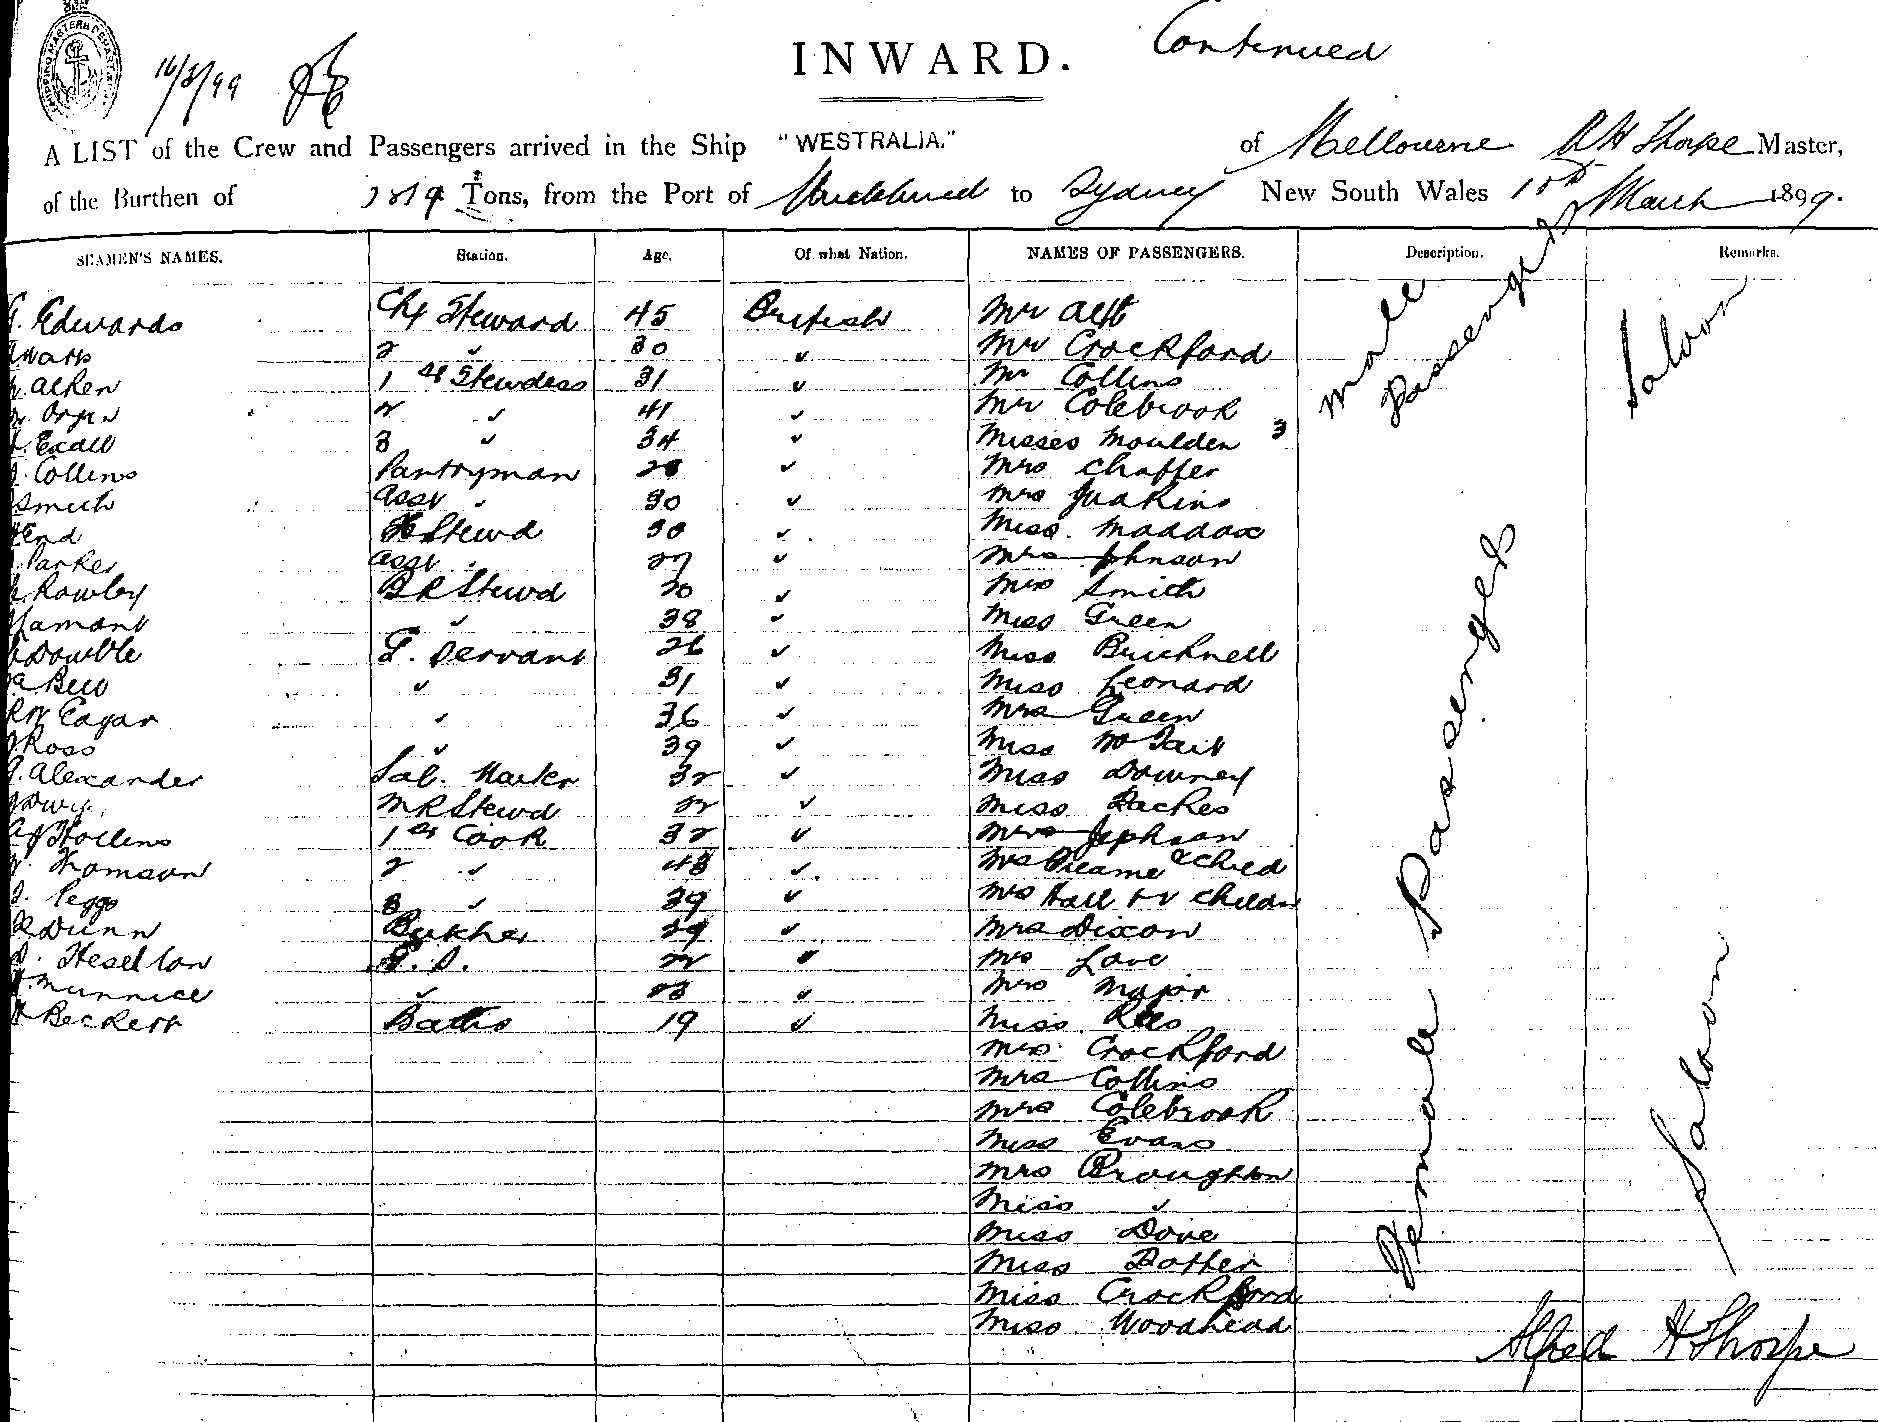 SHIPPING MASTER'S DEPARTMENT
16/3/99
INWARD. Continued
A LIST of the Crew and Passengers arrived in the Ship "WESTRALIA." of Melbourne A H Thorpe Master,
of the Burthen of 1819 Tons, from the Port of to Sydney New South Wales 15th March 1899.
SEAMEN'S NAMES. Station. Age. Of what Nation. NAMES OF PASSENGERS. Description. Remarks.
Edwards Chf Steward 45 British Mr Alft Male Passengers Saloon
2 ✓ 30 ✓ Mr Crockford
Aiken 1st Stewdess 31 ✓ Mr Collins
2 ✓ 41 ✓ Mr Colebrook
3 ✓ 34 ✓ Misses Moulden 3
Collins Pantryman 28 ✓ Mrs Chaffer
Smith Asst " 30 ✓ Mrs Juakins
Stewd 30 ✓ Miss Maddox
Parker Asst " 27 ✓ Mrs Johnson
Rowley B R Stewd 20 ✓ Mrs Smith
✓ 38 ✓ Miss Green
Double G. Servant 26 ✓ Miss Bricknell
Bell ✓ 31 ✓ Miss Leonard
Eagar ✓ 36 ✓ Mrs Green
Ross ✓ 39 ✓ Miss McTait
Alexander Sal. Waiter 32 ✓ Miss Downey
M R Stewd 22 ✓ Miss Packes
Hollins 1st Cook 32 ✓ Mrs Jephson
Thomson 2 ✓ 48 ✓ Mrs & Child
Peggs 3 ✓ 39 ✓ Mrs Hall & 2 Childn
Dunn Butcher 29 ✓ Mrs Dixon
Heselton G. S. 22 ✓ Mrs Love
✓ 23 ✓ Mrs Major
Beckett Baths 19 ✓ Miss Rees
Mrs Crockford
Mrs Collins
Mrs Colebrook
Miss Evans
Mrs Broughton
Miss ✓
Miss Dove
Miss Bother
Miss Crockford
Miss Woodhead
Female Passengers
Saloon
Alfred H Thorpe